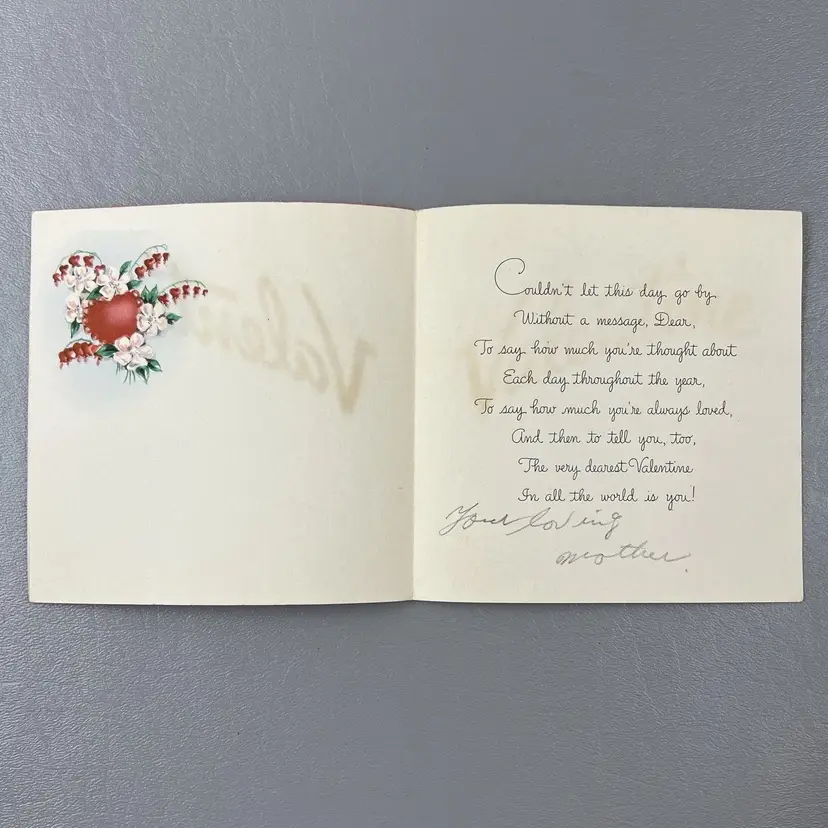 Valen
Couldn't let this day go by
Without a message, Dear,
To say how much you're thought about
Each day throughout the year,
To say how much you're always loved,
And then to tell you, too,
The very dearest Valentine
In all the world is you!
Your loving
mother.